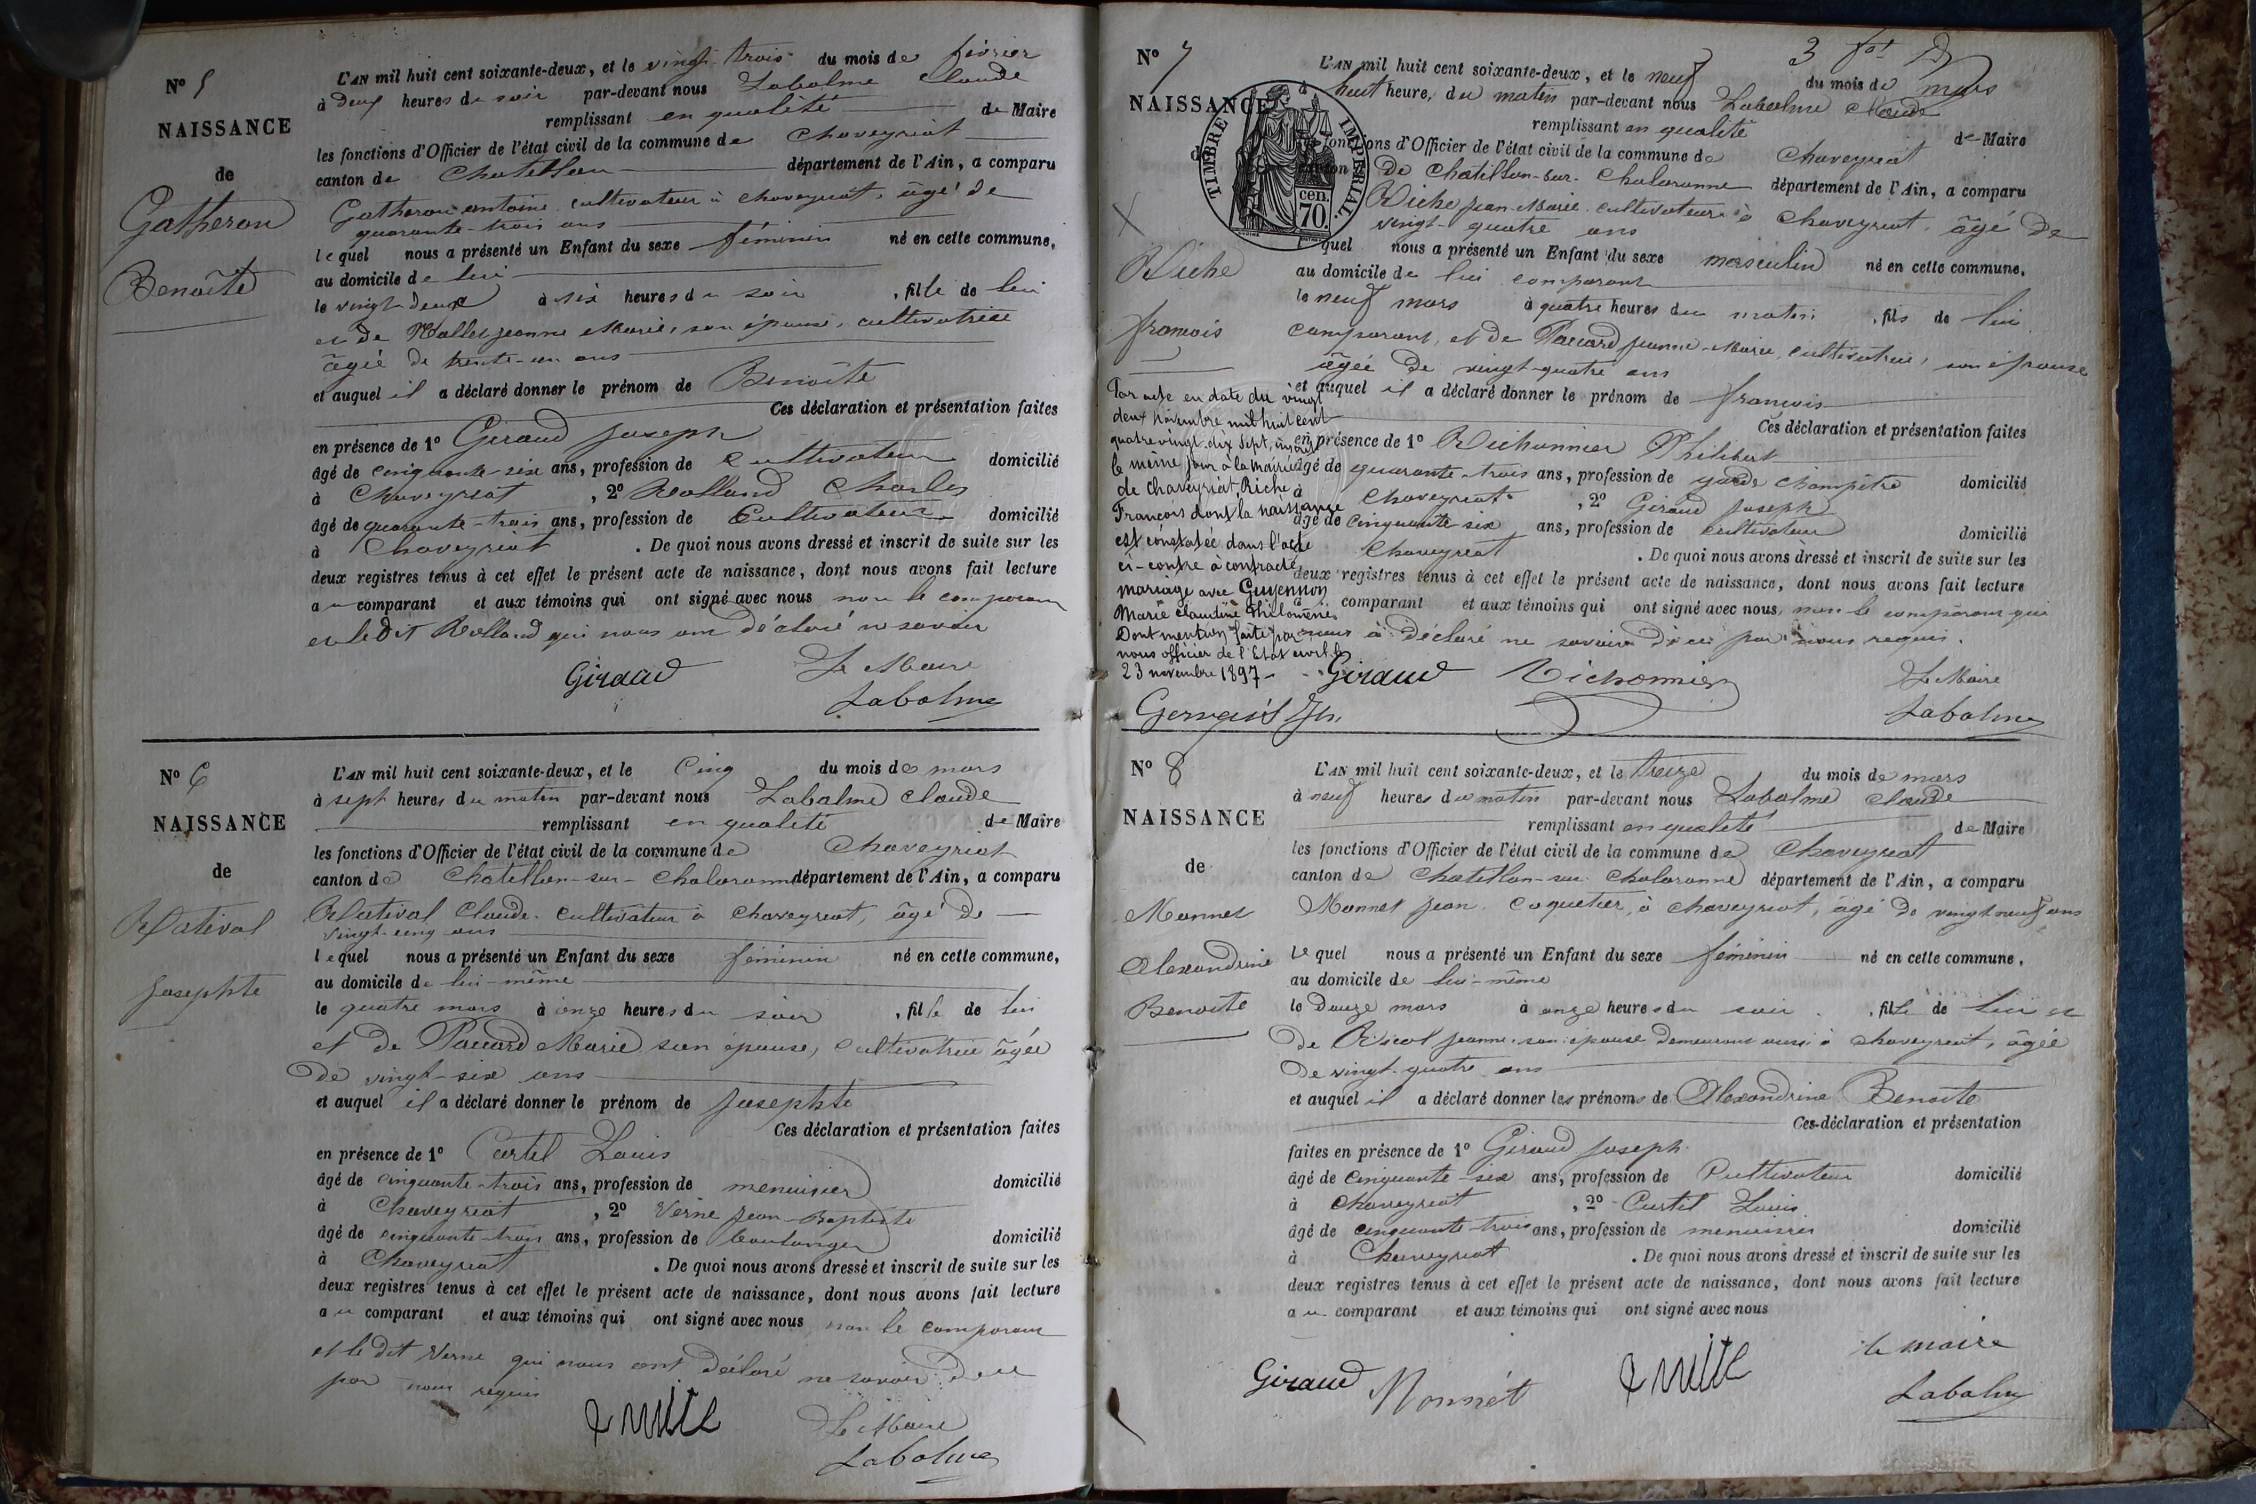 Nº 5
NAISSANCE
de
Gatheron
Benoîte
L'AN mil huit cent soixante-deux, et le vingt-trois du mois de février
à deux heures du soir par-devant nous Labalme Claude
remplissant en qualité de Maire
les fonctions d'Officier de l'état civil de la commune de Chaveyriat
canton de Chatillon département de l'Ain, a comparu
Gatheron antoine cultivateur à chaveyriat, âgé de
quarante-trois ans
lequel nous a présenté un Enfant du sexe féminin né en cette commune,
au domicile de lui
le vingt-deux à six heures du soir, fille de lui
et de jeanne Marie, son épouse, cultivatrice
âgée de trente-un ans
et auquel il a déclaré donner le prénom de Benoîte
Ces déclaration et présentation faites
en présence de 1º Giraud Joseph
âgé de cinquante-six ans, profession de Cultivateur domicilié
à Chaveyriat, 2º Rolland Charles
âgé de quarante-trois ans, profession de Cultivateur domicilié
à Chaveyriat. De quoi nous avons dressé et inscrit de suite sur les
deux registres tenus à cet effet le présent acte de naissance, dont nous avons fait lecture
au comparant et aux témoins qui ont signé avec nous non le comparant
et le dit Rolland qui nous ont déclaré ne savoir
Giraud Le Maire
Labalme
Nº 6
NAISSANCE
de
Josephte
L'AN mil huit cent soixante-deux, et le Cinq du mois de mars
à sept heures du matin par-devant nous Labalme Claude
remplissant en qualité de Maire
les fonctions d'Officier de l'état civil de la commune de Chaveyriat
canton de Chatillon-sur-Chalaronne département de l'Ain, a comparu
Claude. Cultivateur à chaveyriat, âgé de
vingt-cinq ans
lequel nous a présenté un Enfant du sexe féminin né en cette commune,
au domicile de lui-même
le quatre mars à onze heures du soir, fille de lui
et de Pauard Marie son épouse, cultivatrice âgée
de vingt-six ans
et auquel il a déclaré donner le prénom de Josephte
Ces déclaration et présentation faites
en présence de 1º Curtil Louis
âgé de cinquante-trois ans, profession de menuisier domicilié
à Chaveyriat, 2º Verne Jean-Baptiste
âgé de cinquante-trois ans, profession de boulanger domicilié
à Chaveyriat. De quoi nous avons dressé et inscrit de suite sur les
deux registres tenus à cet effet le présent acte de naissance, dont nous avons fait lecture
au comparant et aux témoins qui ont signé avec nous non le comparant
et le dit Verne qui nous ont déclaré ne savoir de ce
par nous requis
Le Maire
Labalme
Nº 7
NAISSANCE
TIMBRE IMPÉRIAL
cen. 70.
Riche
françois
L'AN mil huit cent soixante-deux, et le neuf du mois de mars
à huit heures du matin par-devant nous Labalme Claude
remplissant en qualité de Maire
les fonctions d'Officier de l'état civil de la commune de Chaveyriat
canton De Chatillon-sur-Chalaronne département de l'Ain, a comparu
Riche Jean-Marie cultivateur à Chaveyriat, âgé de
vingt-quatre ans
quel nous a présenté un Enfant du sexe masculin né en cette commune,
au domicile de lui comparant
le neuf mars à quatre heures du matin, fils de lui
comparant, et de Pauard jeanne-Marie, cultivatrice, son épouse
âgée de vingt-quatre ans
et auquel il a déclaré donner le prénom de françois
Ces déclaration et présentation faites
en présence de 1º Richonnier Philibert
âgé de quarante-trois ans, profession de garde champêtre domicilié
à Chaveyriat, 2º Giraud Joseph
âgé de cinquante-six ans, profession de cultivateur domicilié
Chaveyriat. De quoi nous avons dressé et inscrit de suite sur les
deux registres tenus à cet effet le présent acte de naissance, dont nous avons fait lecture
comparant et aux témoins qui ont signé avec nous, non le comparant qui
nous a déclaré ne savoir de ce par nous requis.
Giraud Richonnier Le Maire
Labalme
Par acte en date du vingt
deux novembre mil huit cent
quatre vingt-dix sept, inscrit
le même jour à la mairie
de Chaveyriat, Riche
François dont la naissance
est constatée dans l'acte
ci-contre a contracté
mariage avec Guyennon
Marie Claudine Philomène
Dont mention faite par
nous officier de l'Etat civil le
23 novembre 1897
Nº 8
NAISSANCE
de
Monnet
Alexandrine
Benoite
L'AN mil huit cent soixante-deux, et le treize du mois de mars
à neuf heures du matin par-devant nous Labalme Claude
remplissant en qualité de Maire
les fonctions d'Officier de l'état civil de la commune de Chaveyriat
canton de Chatillon-sur-Chalaronne département de l'Ain, a comparu
Monnet Jean. Coquetier, à chaveyriat, âgé de vingt neuf ans
Lequel nous a présenté un Enfant du sexe féminin né en cette commune,
au domicile de lui-même
le Douze mars à onze heures du soir, fille de lui et
de jeanne, son épouse demeurant aussi à chaveyriat, âgée
de vingt-quatre ans
et auquel il a déclaré donner les prénoms de Alexandrine Benoite
Ces déclaration et présentation
faites en présence de 1º Giraud Joseph
âgé de cinquante-six ans, profession de Cultivateur domicilié
à chaveyriat, 2º Curtil Louis
âgé de cinquante-trois ans, profession de menuisier domicilié
à Chaveyriat. De quoi nous avons dressé et inscrit de suite sur les
deux registres tenus à cet effet le présent acte de naissance, dont nous avons fait lecture
au comparant et aux témoins qui ont signé avec nous
Giraud Monnet le maire
Labalme